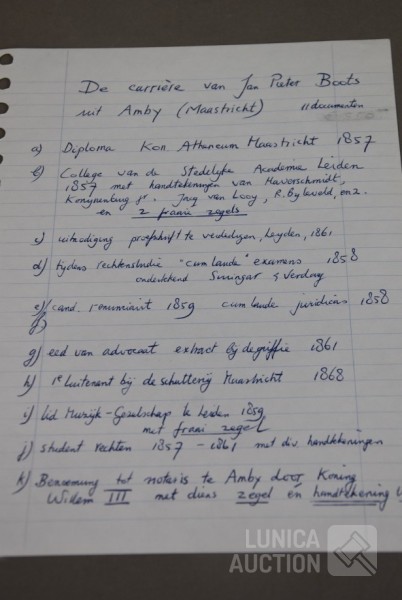 De carrière van Jan Pieter Boots
uit Amby (Maastricht) 11 documenten
a) Diploma Kon Atheneum Maastricht 1857
b) College van de Stedelijke Academia Leiden
1857 met handtekeningen van Haverschmidt,
jr. van Looy, R. Byleveld, enz.
en 2 fraaie zegels
c) uitnodiging proefschrift te verdedigen, Leyden, 1861.
d) tijdens rechtenstudie "cum laude" examens 1858
ondertekend Suringar & Verdam
e) cand. 1859 cum laude juridicus 1858
f)
g) eed van advocaat extract bij de griffie 1861
h) 1e luitenant bij de schutterij Maastricht 1868
i) lid Muzijk-Gezelschap te Leiden 1859
met fraai zegel
j) student rechten 1857 - 1861 met div. handtekeningen
k) Benoeming tot notaris te Amby door Koning
Willem III met diens zegel én handtekening
LUNICA
AUCTION